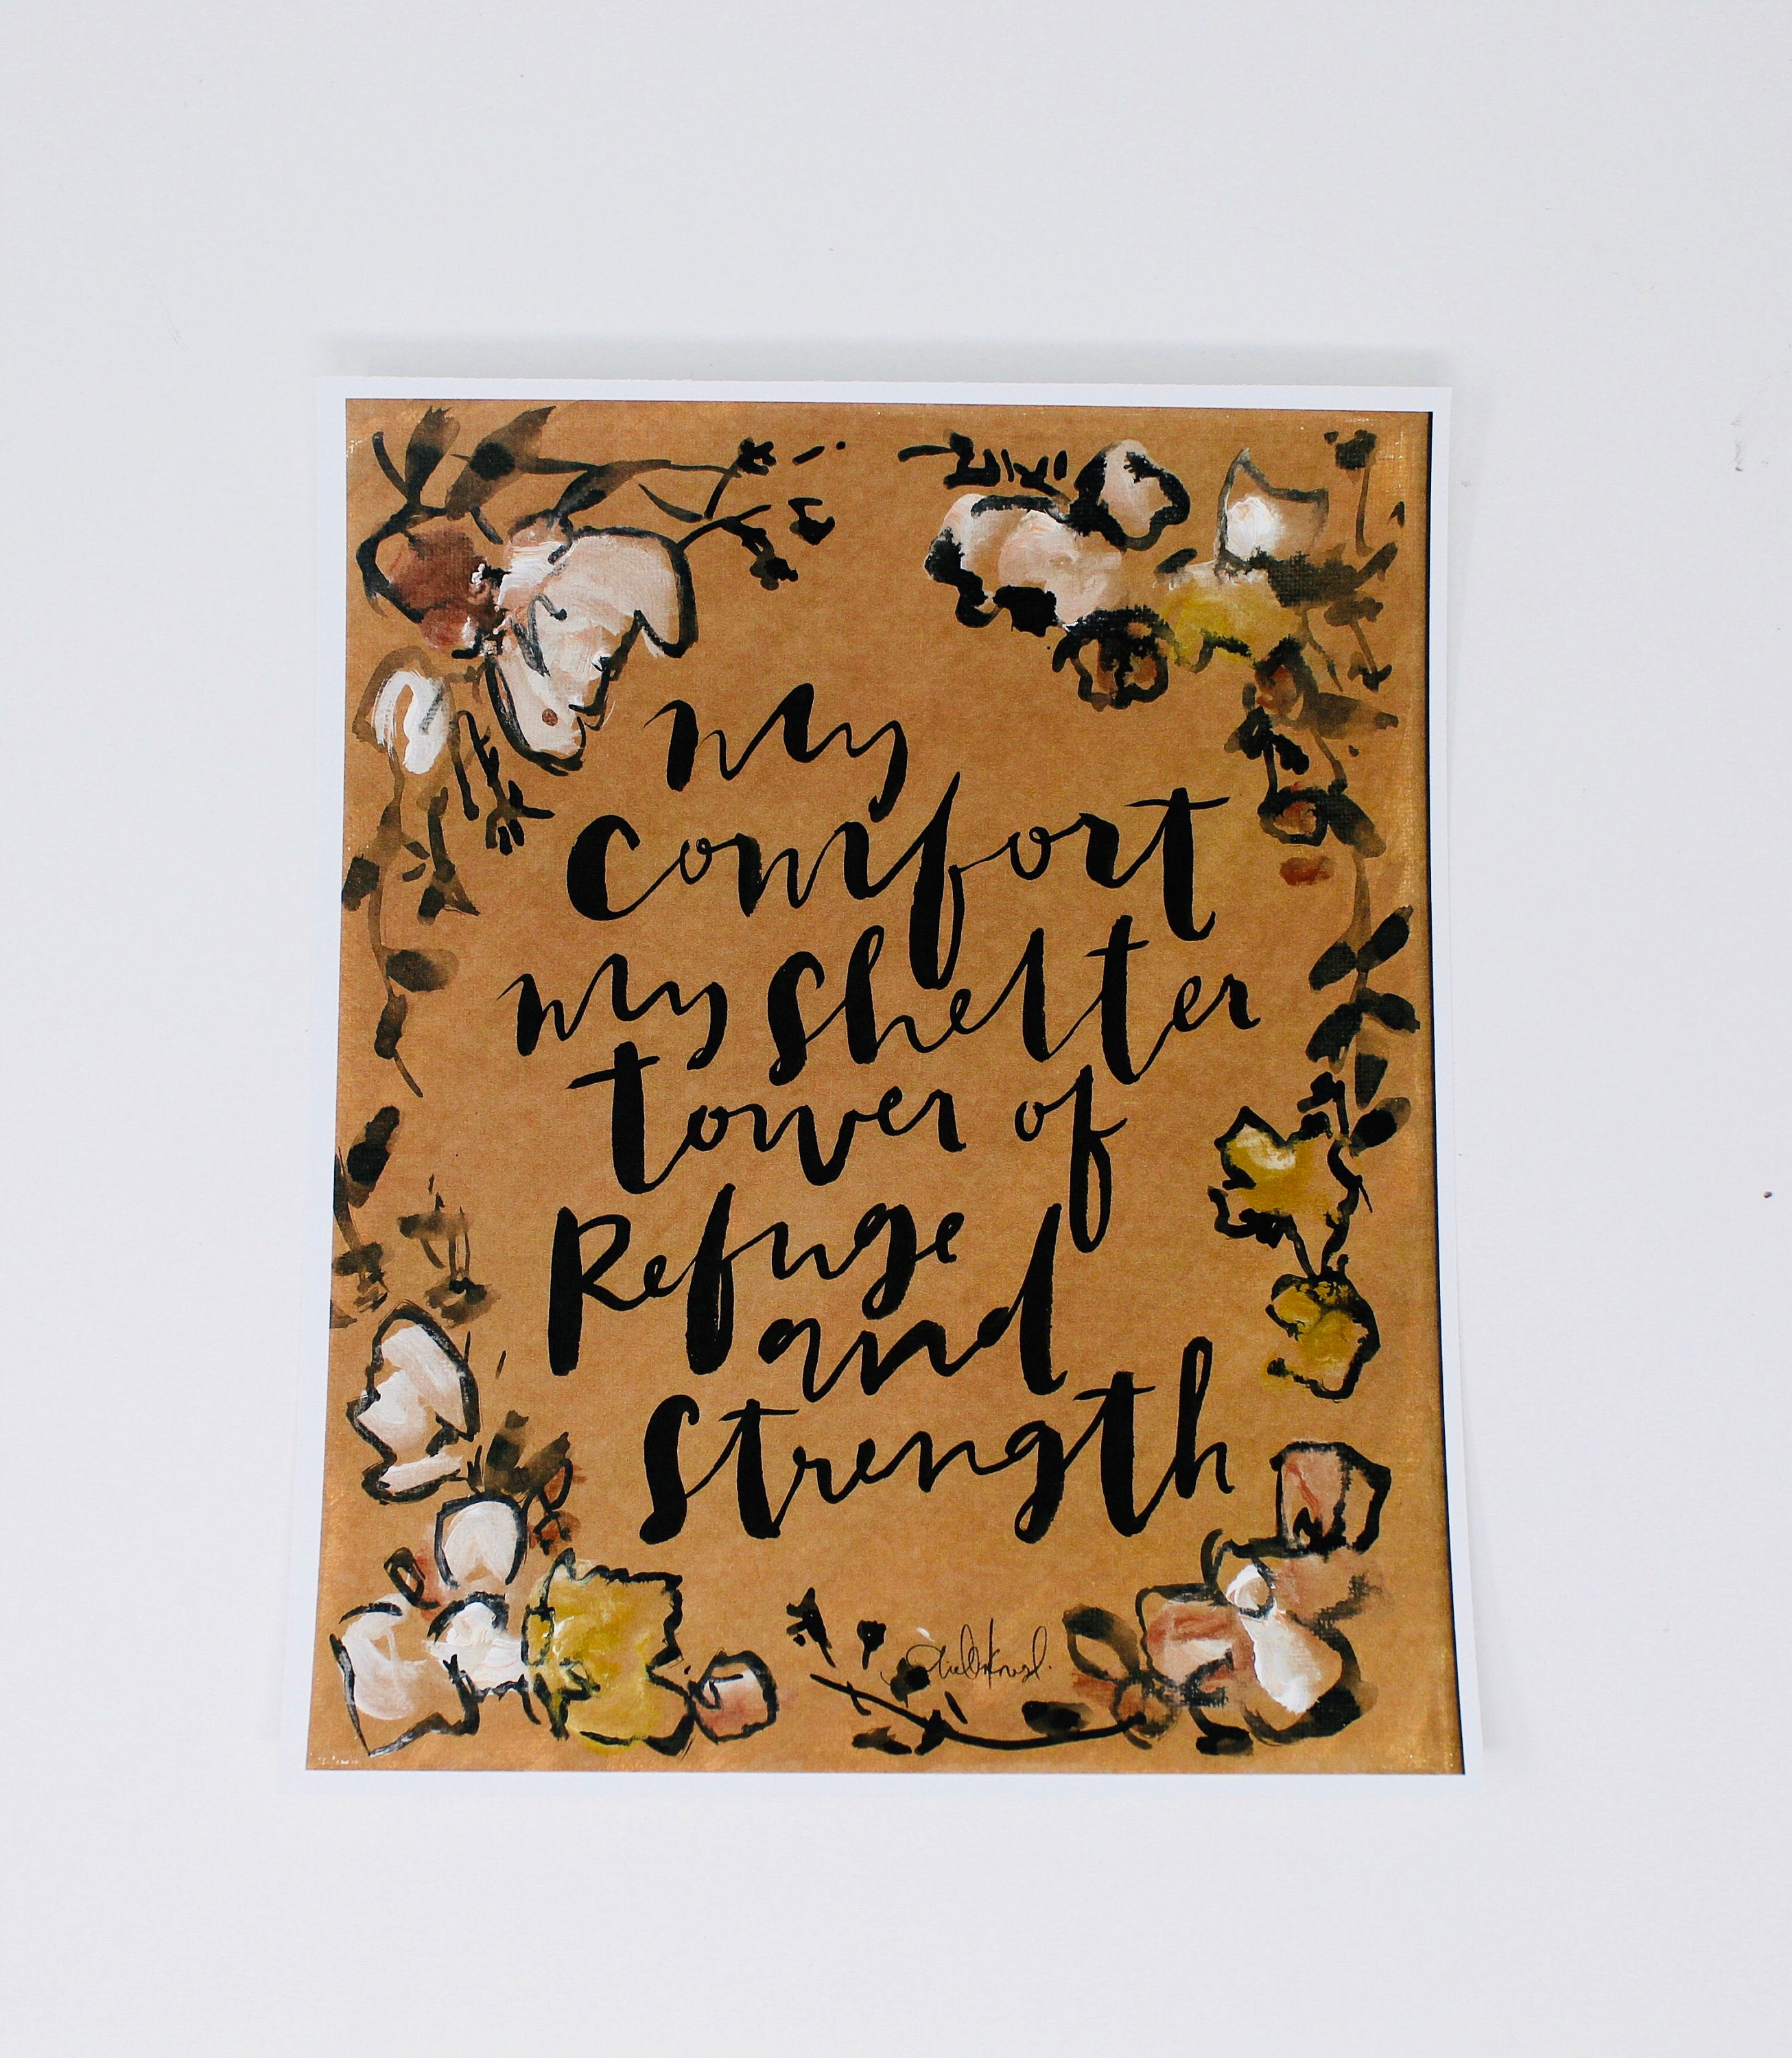 my
comfort
my shelter
tower of
Refuge
and
Strength